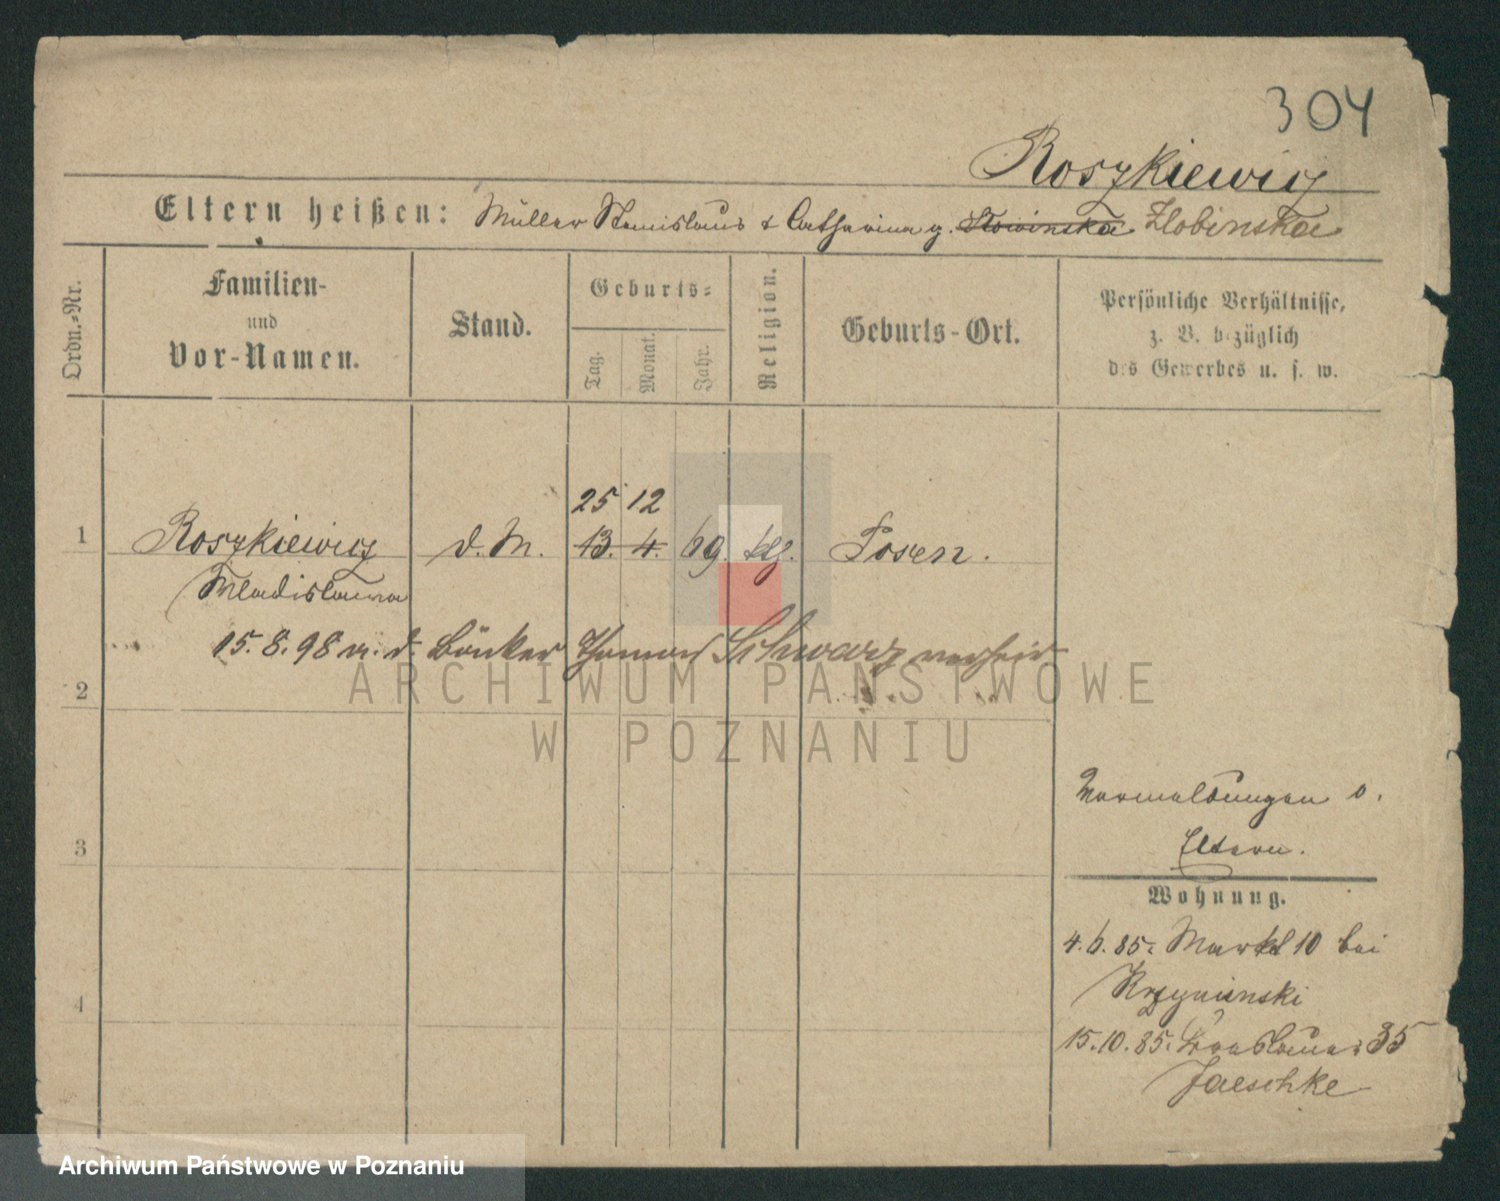 304
Roszkiewicz
Eltern heißen: Müller Stanislaus & Catharina g. Slowinska Zlobinska
Ordn.-Nr.
Familien-
und
Vor-Namen.
Stand.
Geburts-
Tag.
Monat.
Jahr.
Religion.
Geburts-Ort.
Persönliche Verhältnisse,
z. B. bezüglich
des Gewerbes u. s. w.
25 12
1 Roszkiewicz d. M. 13. 4. 69. kth. Posen.
Wladislawa
15.8.98 m. d. Bäcker Thomas Schwarz verheir
2
3
4
Vermeldungen s.
Eltern.
Wohnung.
4.6.85. Markt 10 bei
15.10.85. Breslauer 35
Jaeschke
ARCHIWUM PAŃSTWOWE
W POZNANIU
Archiwum Państwowe w Poznaniu